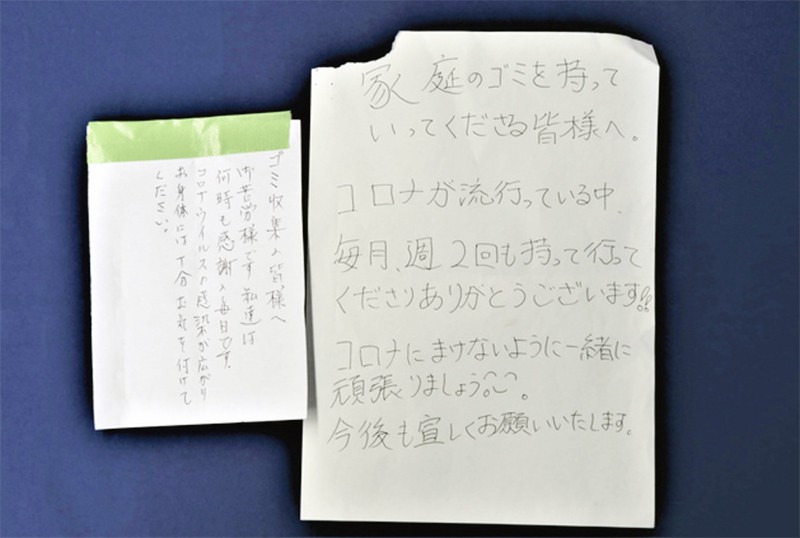 ゴミ収集の皆様へ
御苦労様です 私達は
何時も感謝の毎日です。
コロナウイルスの感染が広がり
お身体には十分お気を付けて
ください。
家庭のゴミを持って
いってくださる皆様へ。
コロナが流行っている中、
毎月、週2回も持って行って
くださりありがとうございます!!
コロナにまけないように一緒に
頑張りましょう。
今後も宜しくお願いいたします。